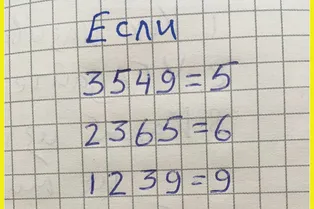 Если
3549=5
2365=6
1239=9